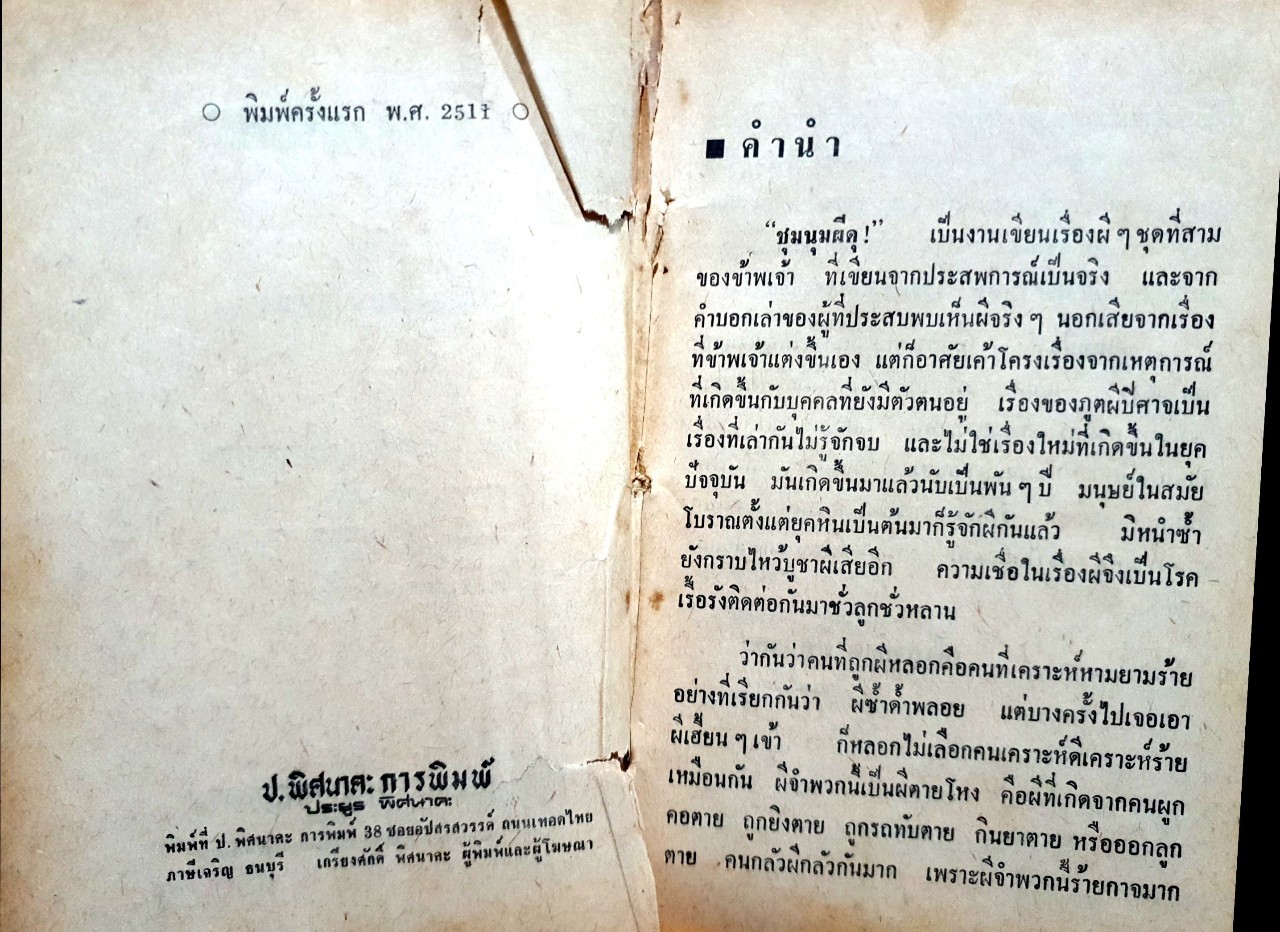 ○ พิมพ์ครั้งแรก พ.ศ. 2511 ○
ป.พิศนาคะ การพิมพ์
ประยูร พิศนาคะ
พิมพ์ที่ ป. พิศนาคะ การพิมพ์ 38 ซอยอัปสรสวรรค์ ถนนเทอดไทย
ภาษีเจริญ ธนบุรี เกรียงศักดิ์ พิศนาคะ ผู้พิมพ์และผู้โฆษณา
■ คำนำ
“ชุมนุมผีดุ!” เป็นงานเขียนเรื่องผี ๆ ชุดที่สาม
ของข้าพเจ้า ที่เขียนจากประสพการณ์เป็นจริง และจาก
คำบอกเล่าของผู้ที่ประสบพบเห็นผีจริง ๆ นอกเสียจากเรื่อง
ที่ข้าพเจ้าแต่งขึ้นเอง แต่ก็อาศัยเค้าโครงเรื่องจากเหตุการณ์
ที่เกิดขึ้นกับบุคคลที่ยังมีตัวตนอยู่ เรื่องของภูตผีปีศาจเป็น
เรื่องที่เล่ากันไม่รู้จักจบ และไม่ใช่เรื่องใหม่ที่เกิดขึ้นในยุค
ปัจจุบัน มันเกิดขึ้นมาแล้วนับเป็นพัน ๆ ปี มนุษย์ในสมัย
โบราณตั้งแต่ยุคหินเป็นต้นมาก็รู้จักผีกันแล้ว มิหนำซ้ำ
ยังกราบไหว้บูชาผีเสียอีก ความเชื่อในเรื่องผีจึงเป็นโรค
เรื้อรังติดต่อกันมาชั่วลูกชั่วหลาน
ว่ากันว่าคนที่ถูกผีหลอกคือคนที่เคราะห์หามยามร้าย
อย่างที่เรียกกันว่า ผีซ้ำด้ำพลอย แต่บางครั้งไปเจอเอา
ผีเฮี้ยน ๆ เข้า ก็หลอกไม่เลือกคนเคราะห์ดีเคราะห์ร้าย
เหมือนกัน ผีจำพวกนี้เป็นผีตายโหง คือผีที่เกิดจากคนผูก
คอตาย ถูกยิงตาย ถูกรถทับตาย กินยาตาย หรือออกลูก
ตาย คนกลัวผีกลัวกันมาก เพราะผีจำพวกนี้ร้ายกาจมาก